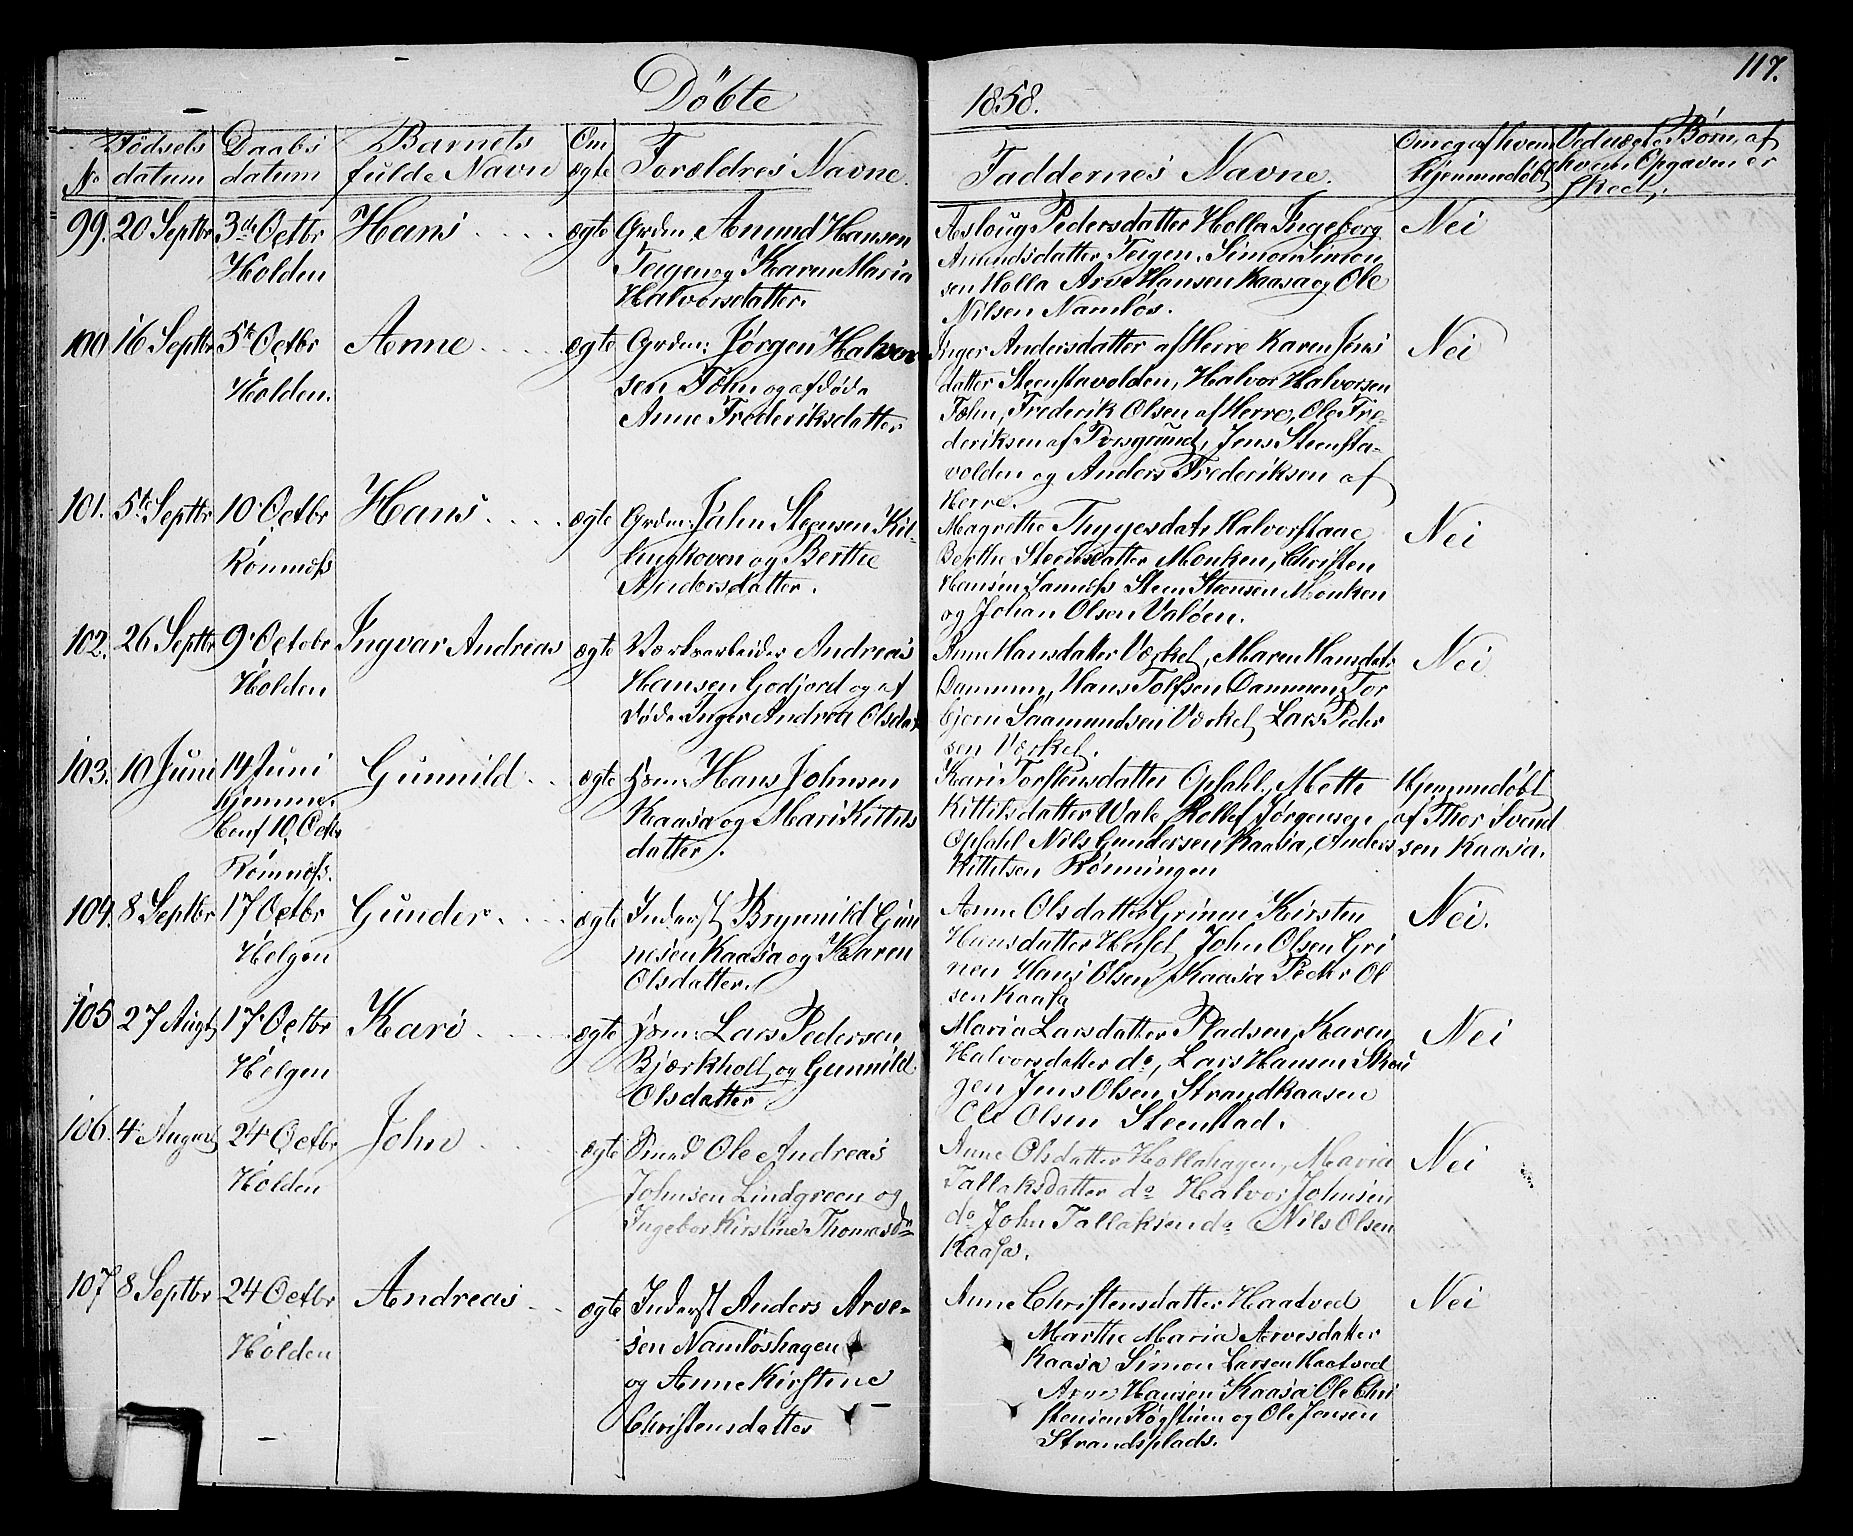 117.
Döbte
1858.
No
Födsels
datum
Daabs
datum
Barnets
fulde Navn
Om
ægte
Forældres Navne.
Faddernes Navne.
Om og af hvem
hjemmedöbt
Ved uægte Børn, af
hvem Opgaven er
skeet;
99. 20 Septbr 3die Octbr Hans ægte Grdm. Amund Hansen
Holden Teigen og Karen Maria
Halvorsdatter.
Asloug Pedersdatter Holla Ingeborg Nei
Amundsdatter Teigen. Simon Simon
sen Holla Arve Hansen Kaasa og Ole
Nilsen Namløs.
100 16 Septbr 5te Octbr Anne ægte Grdm: Jørgen Halvor
Holden. sen Tøhn og afdøde
Anne Frederiksdatter
Inger Andersdatter af Herre Karen Jens Nei
datter Steenstavolden, Halvor Halvorsen
Tøhn, Frederik Olsen af Herre, Ole Fre-
deriksen af Porsgrund, Jens Steensta-
volden og Anders Frederiksen af
Herre.
101. 5te Septbr 10 Octbr Hans ægte Grdm: John Steensen Kil-
Romnæs og Berthe
Andersdatter.
Magrethe Halvorstane Nei
Berthe Steensdatter Monken, Christen
Hansen Steen Steensen Monken
og Johan Olsen Valöen.
102. 26 Septbr 9. Octobr Ingvar Andreas ægte Værksarbeider Andreas
Holden Hansen Godjord og af
døde Inger Andrea Olsdat
Anne Hansdatter Værket, Maren Hansdatr Nei
Dammen, Hans Tolfsen Dammen, Tor
bjørn Saamundsen Værket, Lars Peder
sen Værket.
103. 10 Juni 14 Juni Gunnild ægte Hans Johnsen
hjemme. Kaasa og Mari Kittils
10 Octbr datter.
Romnæs.
Kari Torstensdatter Opsahl, Mette Hjemmedöbt
Kittilsdatter Vale Rollef Jørgensen af Thor Svend
Opsahl Nils Gundersen Kaasa, Anders sen Kaasa.
Kittilsen Rönningen
104. 8 Septbr 17 Octbr Gunder ægte Inderst Brynnild Gun
Helgen nesen Kaasa og Karen
Olsdatter.
Anne Olsdatter Grinen Kirsten Nei.
Hansdatter John Olsen Gri
nen Hans Olsen Kaasa Peder Ol
sen Kaasa
105 27 Augst 17 Octbr Kari ægte Lars Pedersen
Helgen Bjærkholt og Gunnild
Olsdatter
Maria Larsdatter Pladsen, Karen Nei
Halvorsdatter do, Lars Hansen Skou
gen Jens Olsen Strandkaasen
Ole Olsen Steenstad.
106. 4 August 24 Octbr John ægte Smed Ole Andreas
Holden Johnsen Lindgreen og
Ingebor Kirstine Thomasdr
Anne Olsdatter Hollahagen, Maria Nei
Tallaksdatter do Halvor Johnsen
do John Tallaksen do Nils Olsen
Kaasa.
107 8 Septbr 24 Octbr Andreas ægte Inderst Anders Arve-
Holden sen Namløshagen
og Anne Kirstine
Christensdatter
Anne Christensdatter Haatved Nei
Marthe Maria Arvesdatter
Kaasa Simon Larsen Haatved
Arve Hansen Kaasa Ole Chri
stensen Røgstuen og Ole Jensen
Strandsplads.